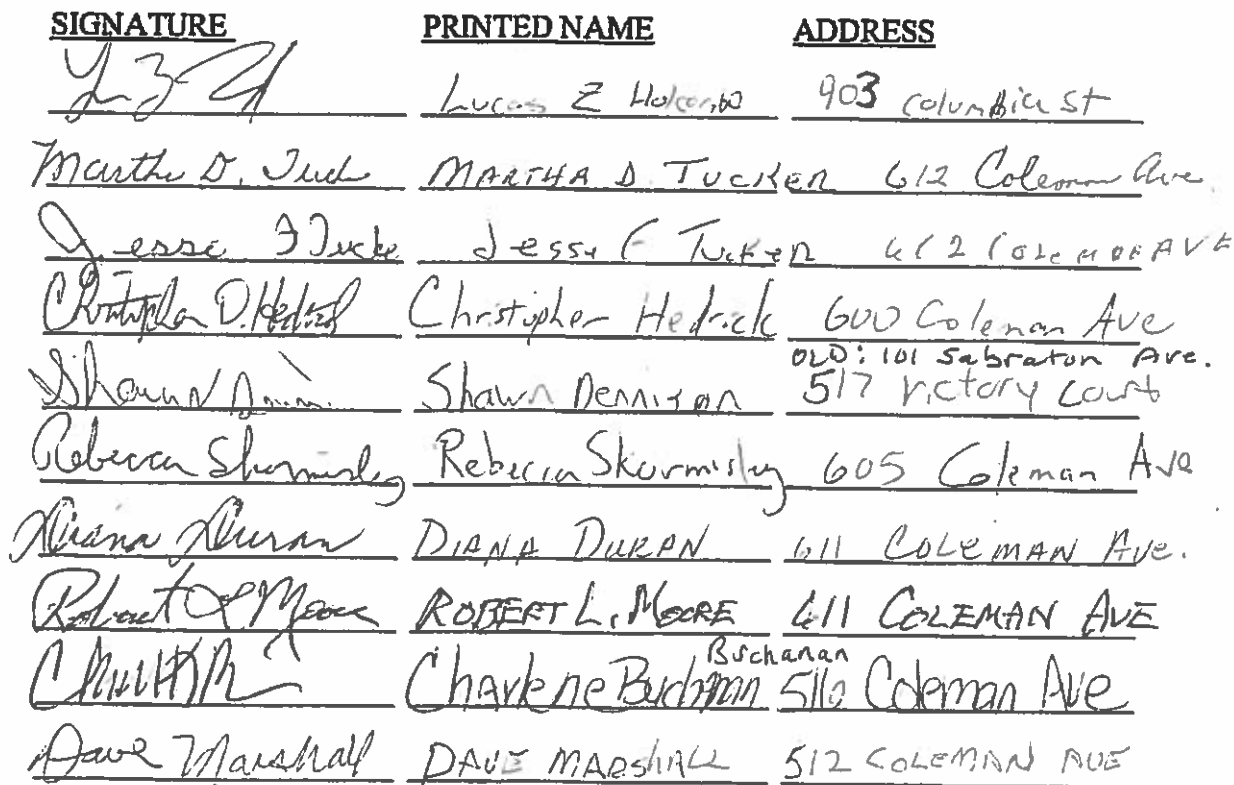 SIGNATURE PRINTED NAME ADDRESS
Lucas Z Holcomb 903 Columbia St
Martha D. Tucker MARTHA D TUCKER 612 Coleman Ave
Jesse F Tucker Jesse F TUCKER 612 COLEMAN AVE
Christopher D. Hedrick Christopher Hedrick 600 Coleman Ave
OLD: 101 Sabraton Ave.
Shawn Dennison 517 Victory Court
Rebecca Skormisley Rebecca Skormisley 605 Coleman Ave
Diana Duran DIANA DURAN 611 COLEMAN Ave.
Robert L Moore ROBERT L. MOORE 611 COLEMAN AVE
Buchanan
Charlene Buchanan Coleman Ave
Dave Marshall DAVE MARSHALL 512 COLEMAN AVE